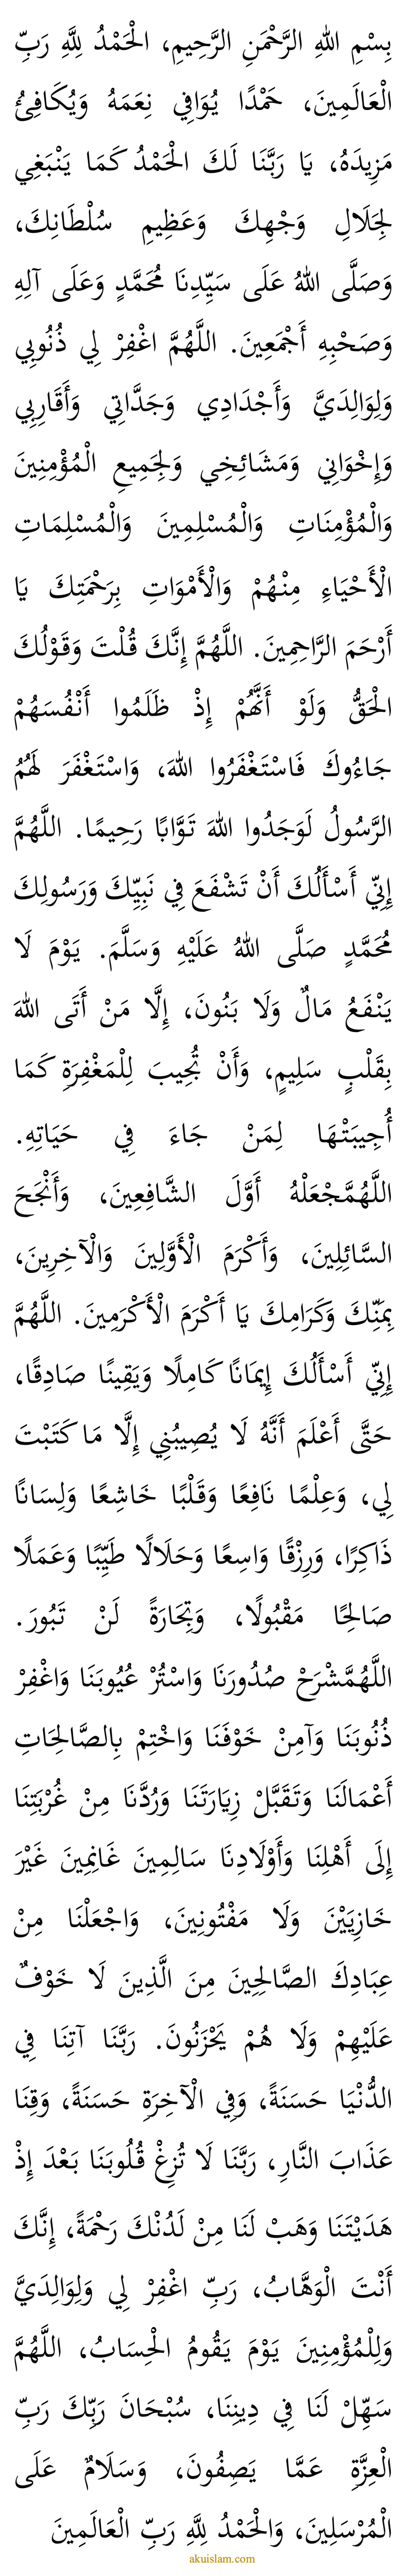 بِسْمِ اللهِ الرَّحْمَنِ الرَّحِيمِ، الْحَمْدُ لِلَّهِ رَبِّ
الْعَالَمِينَ، حَمْدًا يُوَافِي نِعَمَهُ وَيُكَافِئُ
مَزِيدَهُ، يَا رَبَّنَا لَكَ الْحَمْدُ كَمَا يَنْبَغِي
لِجَلَالِ وَجْهِكَ وَعَظِيمِ سُلْطَانِكَ،
وَصَلَّى اللهُ عَلَى سَيِّدِنَا مُحَمَّدٍ وَعَلَى آلِهِ
وَصَحْبِهِ أَجْمَعِينَ. اللَّهُمَّ اغْفِرْ لِي ذُنُوبِي
وَلِوَالِدَيَّ وَأَجْدَادِي وَجَدَّاتِي وَأَقَارِبِي
وَإِخْوَانِي وَمَشَائِخِي وَلِجَمِيعِ الْمُؤْمِنِينَ
وَالْمُؤْمِنَاتِ وَالْمُسْلِمِينَ وَالْمُسْلِمَاتِ
الْأَحْيَاءِ مِنْهُمْ وَالْأَمْوَاتِ بِرَحْمَتِكَ يَا
أَرْحَمَ الرَّاحِمِينَ. اللَّهُمَّ إِنَّكَ قُلْتَ وَقَوْلُكَ
الْحَقُّ وَلَوْ أَنَّهُمْ إِذْ ظَلَمُوا أَنْفُسَهُمْ
جَاءُوكَ فَاسْتَغْفَرُوا اللهَ، وَاسْتَغْفَرَ لَهُمُ
الرَّسُولُ لَوَجَدُوا اللهَ تَوَّابًا رَحِيمًا. اللَّهُمَّ
إِنِّي أَسْأَلُكَ أَنْ تَشْفَعَ فِي نَبِيِّكَ وَرَسُولِكَ
مُحَمَّدٍ صَلَّى اللهُ عَلَيْهِ وَسَلَّمَ. يَوْمَ لَا
يَنْفَعُ مَالٌ وَلَا بَنُونَ، إِلَّا مَنْ أَتَى اللهَ
بِقَلْبٍ سَلِيمٍ، وَأَنْ تُجِيبَ لِلْمَغْفِرَةِ كَمَا
أُجِيبَتْهَا لِمَنْ جَاءَ فِي حَيَاتِهِ.
اللَّهُمَّجْعَلْهُ أَوَّلَ الشَّافِعِينَ، وَأَنْجَحَ
السَّائِلِينَ، وَأَكْرَمَ الْأَوَّلِينَ وَالْآخِرِينَ،
بِمَنِّكَ وَكَرَامِكَ يَا أَكْرَمَ الْأَكْرَمِينَ. اللَّهُمَّ
إِنِّي أَسْأَلُكَ إِيمَانًا كَامِلًا وَيَقِينًا صَادِقًا،
حَتَّى أَعْلَمَ أَنَّهُ لَا يُصِيبُنِي إِلَّا مَا كَتَبْتَ
لِي، وَعِلْمًا نَافِعًا وَقَلْبًا خَاشِعًا وَلِسَانًا
ذَاكِرًا، وَرِزْقًا وَاسِعًا وَحَلَالًا طَيِّبًا وَعَمَلًا
صَالِحًا مَقْبُولًا، وَتِجَارَةً لَنْ تَبُورَ.
اللَّهُمَّشْرَحْ صُدُورَنَا وَاسْتُرْ عُيُوبَنَا وَاغْفِرْ
ذُنُوبَنَا وَآمِنْ خَوْفَنَا وَاخْتِمْ بِالصَّالِحَاتِ
أَعْمَالَنَا وَتَقَبَّلْ زِيَارَتَنَا وَرُدَّنَا مِنْ غُرْبَتِنَا
إِلَى أَهْلِنَا وَأَوْلَادِنَا سَالِمِينَ غَانِمِينَ غَيْرَ
خَازِيَيْنَ وَلَا مَفْتُونِينَ، وَاجْعَلْنَا مِنْ
عِبَادِكَ الصَّالِحِينَ مِنَ الَّذِينَ لَا خَوْفٌ
عَلَيْهِمْ وَلَا هُمْ يَحْزَنُونَ. رَبَّنَا آتِنَا فِي
الدُّنْيَا حَسَنَةً، وَفِي الْآخِرَةِ حَسَنَةً، وَقِنَا
عَذَابَ النَّارِ، رَبَّنَا لَا تُزِغْ قُلُوبَنَا بَعْدَ إِذْ
هَدَيْتَنَا وَهَبْ لَنَا مِنْ لَدُنْكَ رَحْمَةً، إِنَّكَ
أَنْتَ الْوَهَّابُ، رَبِّ اغْفِرْ لِي وَلِوَالِدَيَّ
وَلِلْمُؤْمِنِينَ يَوْمَ يَقُومُ الْحِسَابُ، اللَّهُمَّ
سَهِّلْ لَنَا فِي دِيننَا، سُبْحَانَ رَبِّكَ رَبِّ
الْعِزَّةِ عَمَّا يَصِفُونَ، وَسَلَامٌ عَلَى
الْمُرْسَلِينَ، وَالْحَمْدُ لِلَّهِ رَبِّ الْعَالَمِينَ
akuislam.com